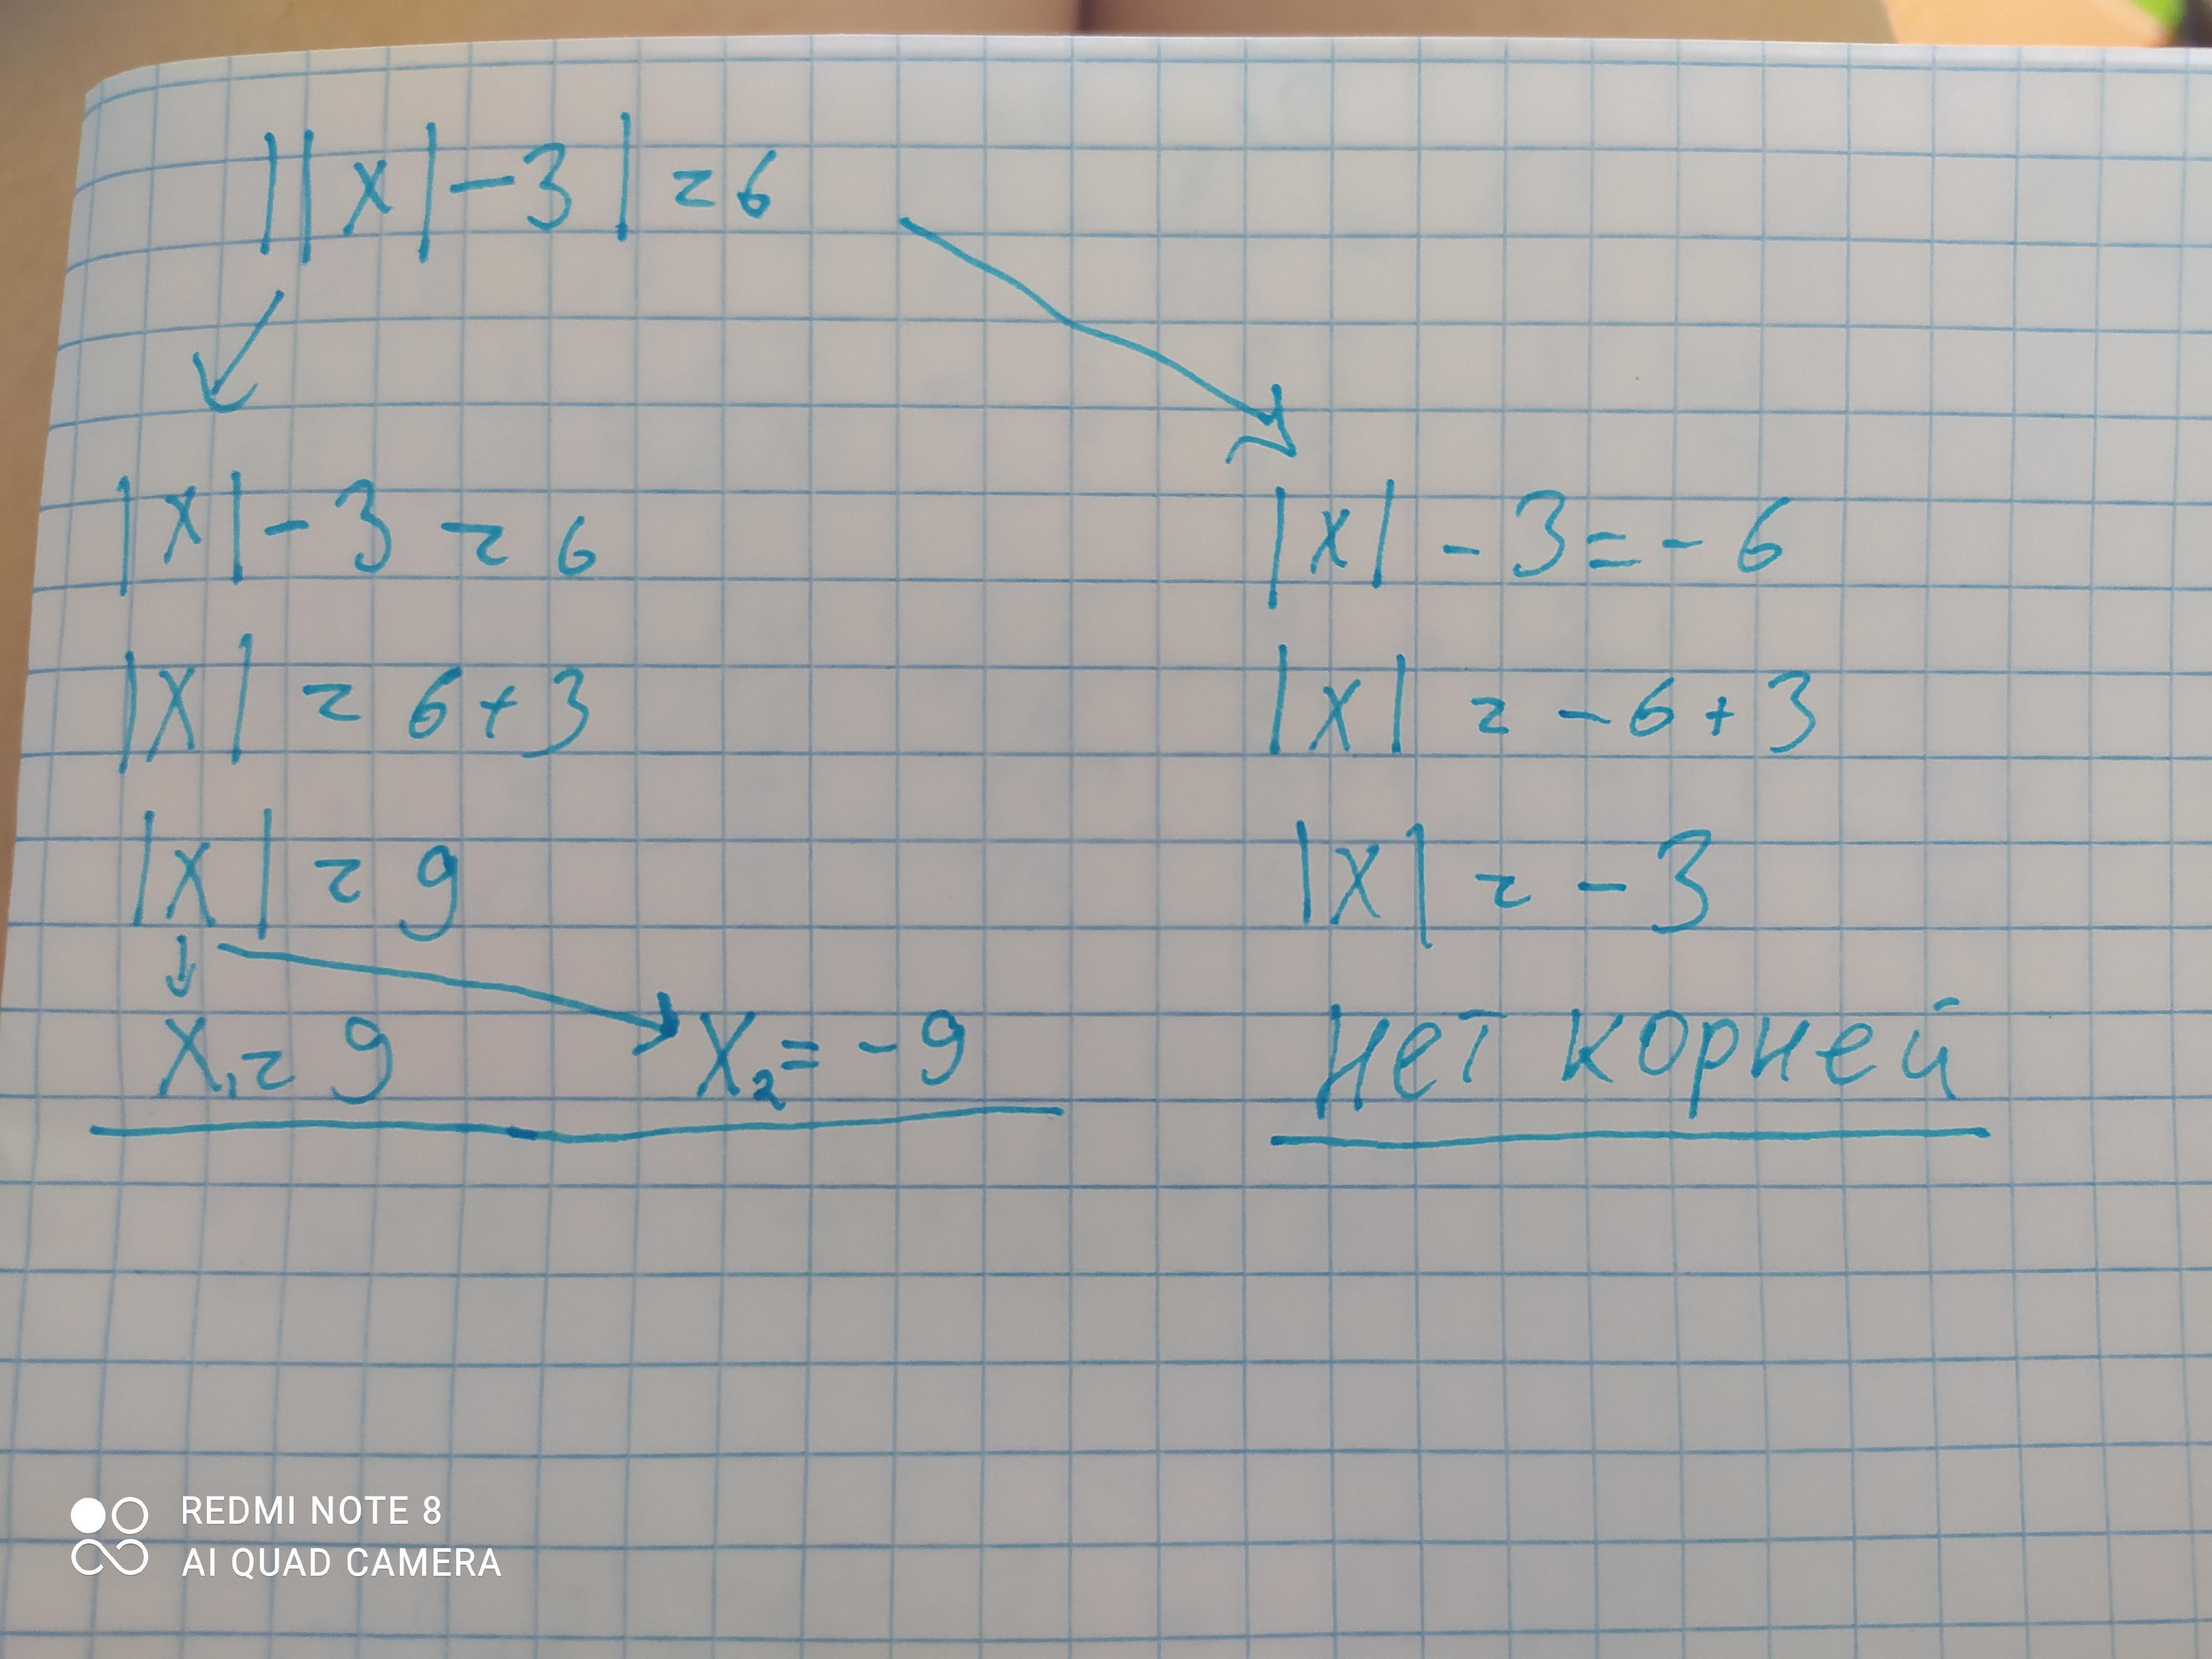 ||x|-3|=6
|x|-3=6
|x|=6+3
|x|=9
x₁=9 x₂=-9
|x|-3=-6
|x|=-6+3
|x|=-3
нет корней
REDMI NOTE 8
AI QUAD CAMERA